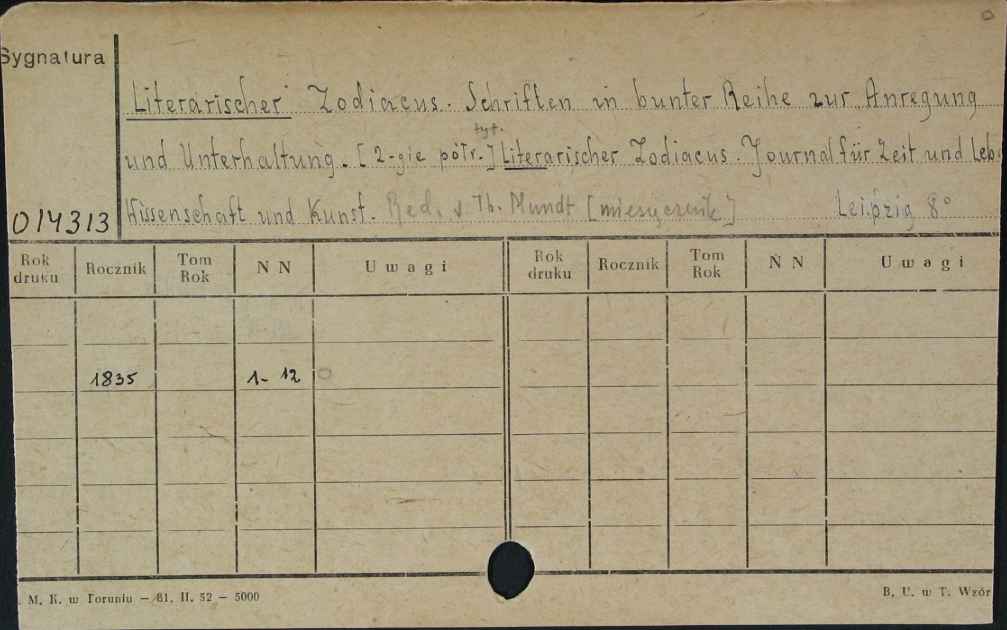 Sygnatura
Literarischer Zodiacus. Schriften in bunter Reihe zur Anregung
tyt.
und Unterhaltung. [2-gie półr.] Literarischer Zodiacus. Journal für Zeit und Leb.
014313 Wissenschaft und Kunst. Red. v. Th. Mundt [miesięcznik] Leipzig 8°
Rok druku Rocznik Tom Rok N N Uwagi Rok druku Rocznik Tom Rok N N Uwagi
1835 1-12
M. K. w Toruniu — 81. II. 52 — 5000 B. U. w T. Wzór